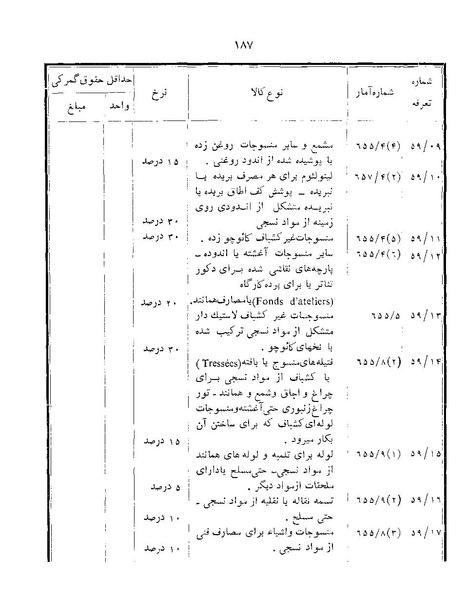 ۱۸۷
شماره تعرفه | شماره آمار | نوع کالا | نرخ | حداقل حقوق گمرکی
واحد | مبلغ
۵۹/۰۹ | ۶۵۵/۴(۴) | مشمع و سایر منسوجات روغن زده
یا پوشیده شده از اندود روغنی . | ۱۵ درصد
۵۹/۱۰ | ۶۵۷/۴(۲) | لینولئوم برای هر مصرف بریده یا
نبریده ــ پوشش کف اطاق بریده یا
نبریده متشکل از اندودی روی
زمینه از مواد نسجی | ۳۰ درصد
۵۹/۱۱ | ۶۵۵/۴(۵) | منسوجات غیر کشباف کائوچو زده . | ۳۰ درصد
۵۹/۱۲ | ۶۵۵/۴(۶) | سایر منسوجات آغشته یا اندوده ــ
پارچه‌های نقاشی شده برای دکور
تئاتر یا برای پرده کارگاه
(Fonds d'ateliers) یا مصارف همانند. | ۲۰ درصد
۵۹/۱۳ | ۶۵۵/۵ | منسوجات غیر کشباف لاستیک دار
متشکل از مواد نسجی ترکیب شده
با نخهای کائوچو . | ۳۰ درصد
۵۹/۱۴ | ۶۵۵/۸(۲) | فتیله‌های منسوج یا بافته (Tressées)
یا کشباف از مواد نسجی برای
چراغ و اجاق و شمع و همانند ــ تور
چراغ زنبوری حتی آغشته و منسوجات
لوله‌ای کشباف که برای ساختن آن
بکار میرود . | ۱۵ درصد
۵۹/۱۵ | ۶۵۵/۹(۱) | لوله برای تلمبه و لوله های همانند
از مواد نسجی ــ حتی مسلح یا دارای
ملحقات از مواد دیگر . | ۵ درصد
۵۹/۱۶ | ۶۵۵/۹(۲) | تسمه نقاله یا نقلیه از مواد نسجی ــ
حتی مسلح . | ۱۰ درصد
۵۹/۱۷ | ۶۵۵/۸(۳) | منسوجات و اشیاء برای مصارف فنی
از مواد نسجی . | ۱۰ درصد